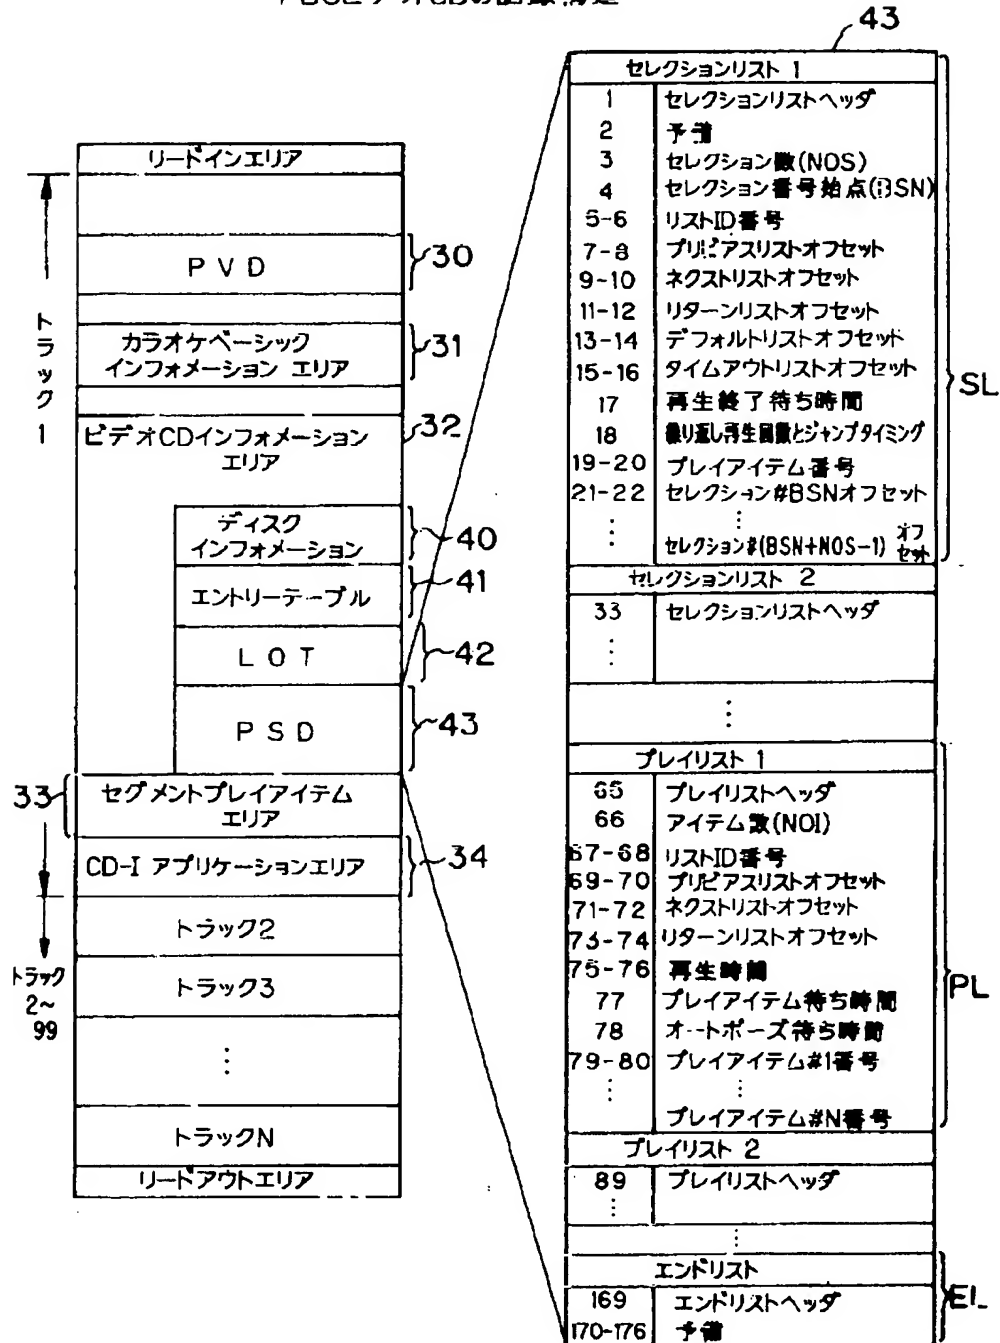 リードインエリア
PVD
30
カラオケベーシック
インフォメーション エリア
31
トラック1
ビデオCDインフォメーション
エリア
32
ディスク
インフォメーション
40
エントリーテーブル
41
LOT
42
PSD
43
33
セグメントプレイアイテム
エリア
CD-I アプリケーションエリア
34
トラック2
トラック3
トラック
2~
99
⋮
トラックN
リードアウトエリア
43
セレクションリスト 1
1 セレクションリストヘッダ
2 予備
3 セレクション数(NOS)
4 セレクション番号始点(BSN)
5-6 リストID番号
7-8 プリビアスリストオフセット
9-10 ネクストリストオフセット
11-12 リターンリストオフセット
13-14 デフォルトリストオフセット
15-16 タイムアウトリストオフセット
17 再生終了待ち時間
18 繰り返し再生回数とジャンプタイミング
19-20 プレイアイテム番号
21-22 セレクション#BSNオフセット
⋮ ⋮
セレクション#(BSN+NOS-1) オフセット
SL
セレクションリスト 2
33 セレクションリストヘッダ
⋮
⋮
プレイリスト 1
65 プレイリストヘッダ
66 アイテム数(NOI)
67-68 リストID番号
69-70 プリビアスリストオフセット
71-72 ネクストリストオフセット
73-74 リターンリストオフセット
75-76 再生時間
77 プレイアイテム待ち時間
78 オートポーズ待ち時間
79-80 プレイアイテム#1番号
⋮ ⋮
プレイアイテム#N番号
PL
プレイリスト 2
89 プレイリストヘッダ
⋮
⋮
エンドリスト
169 エンドリストヘッダ
170-176 予備
EL